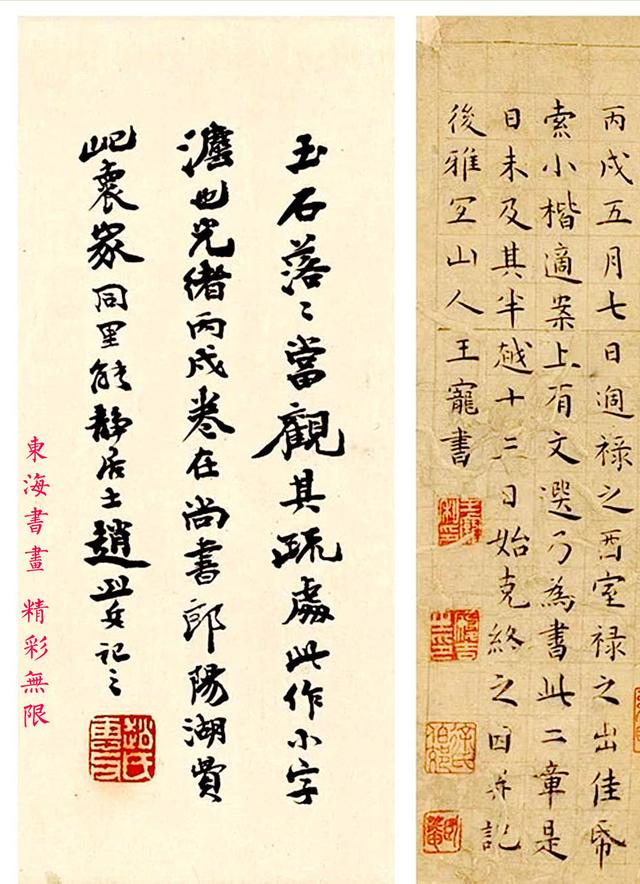 丙戌五月七日過禄之西室禄之出佳帋
索小楷適案上有文選乃為書此二章是
日未及其半越十二日始克終之因并記
後雅宜山人王寵書
玉石落〻當觀其疏處此作小字
灋也光緒丙戌卷在尚書郎陽湖費
屺褱家同里能静居士趙烈文記之
東海書畫 精彩無限